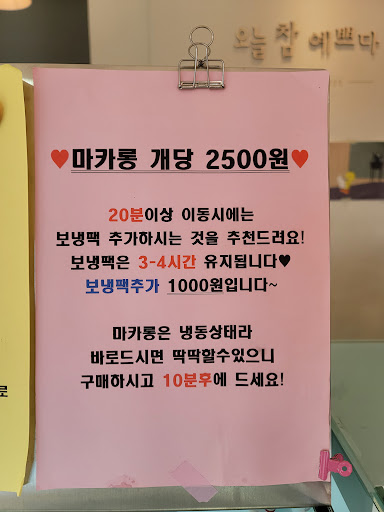 오늘 참 예쁘다
♥마카롱 개당 2500원♥
20분이상 이동시에는
보냉팩 추가하시는 것을 추천드려요!
보냉팩은 3-4시간 유지됩니다♥
보냉팩추가 1000원입니다~
마카롱은 냉동상태라
바로드시면 딱딱할수있으니
구매하시고 10분후에 드세요!
로